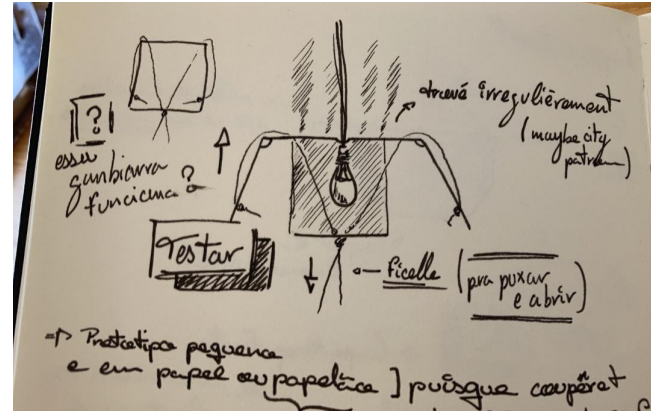 ?
essa
gambiarra
funciona?
troué irregulièrement
(maybe city
pattern)
Testar
← ficelle (pra puxar
e abrir)
=> Prototipo pequeno
e em papel ou papelão ] puisque